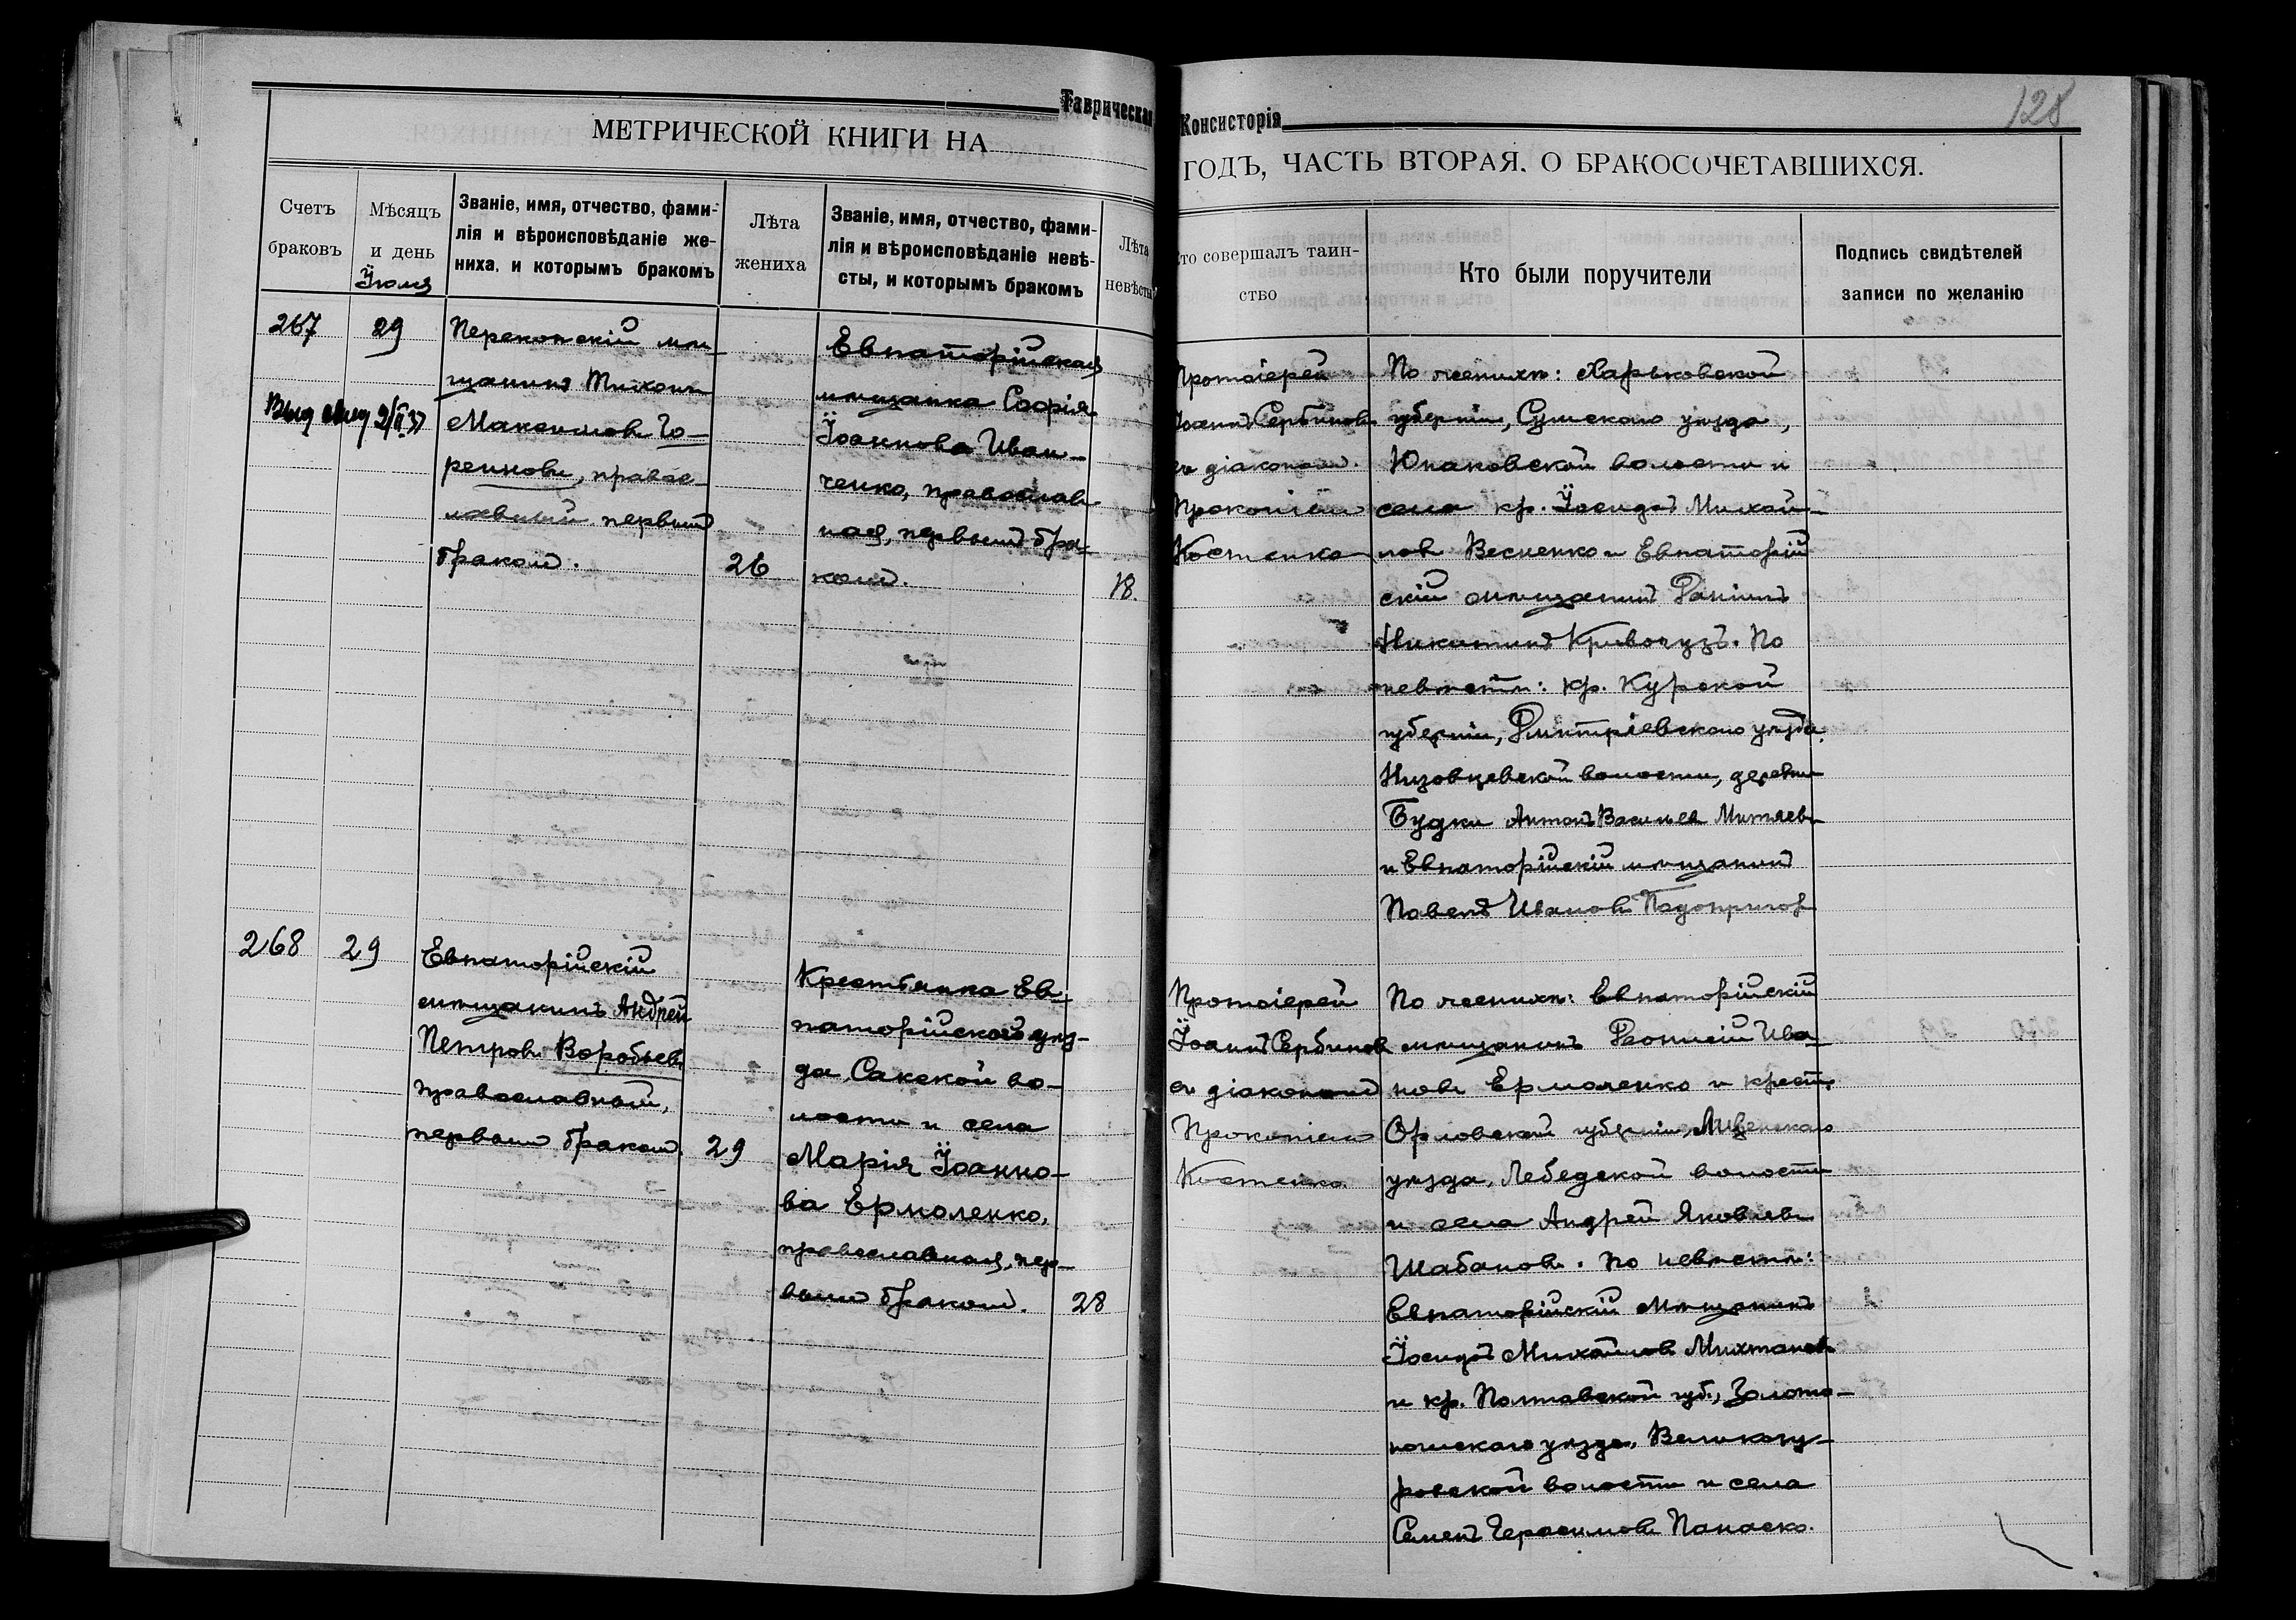 Таврическая Консисторія
128
МЕТРИЧЕСКОЙ КНИГИ НА
ГОДЪ, ЧАСТЬ ВТОРАЯ, О БРАКОСОЧЕТАВШИХСЯ.
Счетъ
браковъ
Мѣсяцъ
и день
Іюля
Званіе, имя, отчество, фами-
лія и вѣроисповѣданіе же-
ниха, и которымъ бракомъ
Лѣта
жениха
Званіе, имя, отчество, фами-
лія и вѣроисповѣданіе невѣ-
сты, и которымъ бракомъ
Лѣта
невѣсты
Кто совершалъ таин-
ство
Кто были поручители
Подпись свидѣтелей
записи по желанію
267
29
Перекопскій мѣ-
щанинъ Тихонъ
Максимовъ Го-
реиновъ, правос-
лавный первымъ
бракомъ.
26
Евпаторійская
мѣщанка Софія
Іоаннова Иван-
ченко, православ-
ная, первымъ бра-
комъ.
18.
Протоіерей
Іоаннъ Сербиновъ
съ діакономъ
Прокопіемъ
Костенко
По женихѣ: Харьковской
губерніи, Сумскаго уѣзда,
Юнаковской волости и
села кр. Іосифъ Михай-
ловъ Весненко и Евпаторій
скій мѣщанинъ Даніилъ
Никитинъ Кривопузъ. По
невѣстѣ: кр. Курской
губерніи, Дмитріевскаго уѣзда,
Низовцевской волости, деревни
Будки Антонъ Васильев Митяевъ
и Евпаторійскій мѣщанинъ
Павелъ Ивановъ Подопригор
268
29
Евпаторійскій
мѣщанинъ Андрей
Петровъ Воробьевъ
православный,
первымъ бракомъ.
29
Крестьянка Ев-
паторійскаго уѣз-
да Сакской во-
лости и села
Марія Іоанно-
ва Ермоленко,
православная, пер-
вымъ бракомъ.
28
Протоіерей
Іоаннъ Сербиновъ
съ діакономъ
Прокопіемъ
Костенко
По женихѣ: Евпаторійскій
мѣщанинъ Діонисій Ива-
новъ Ермоленко и крест.
Орловской губерніи, Ливенскаго
уѣзда, Лебедской волости
и села Андрей Яковлевъ
Шабановъ. По невѣстѣ:
Евпаторійскій мѣщанинъ
Іосифъ Михайловъ Михтановъ
и кр. Полтавской губ., Золото-
ношскаго уѣзда,
волости и села
Семенъ Герасимовъ Панаско.